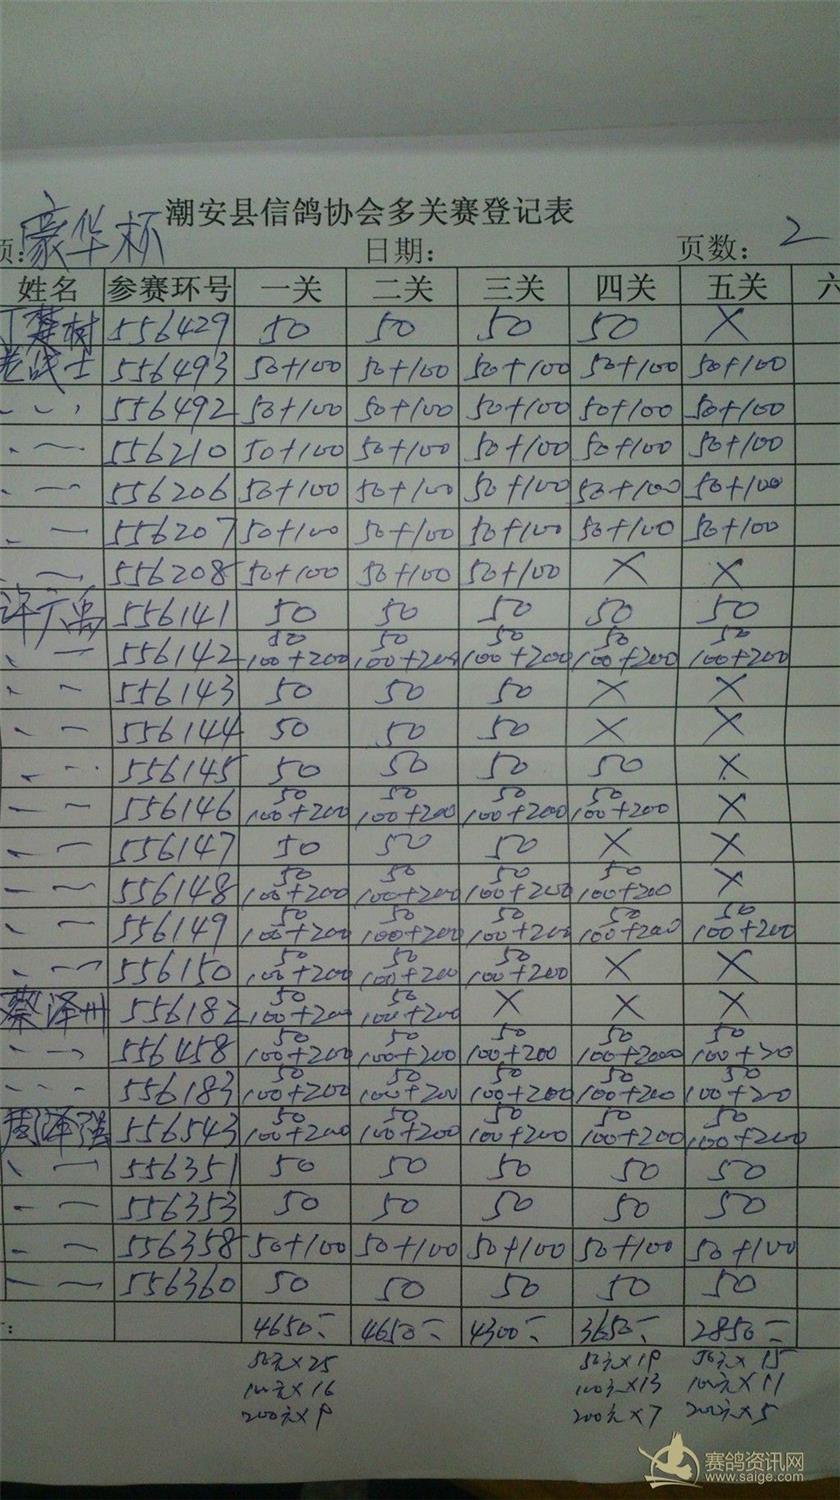 潮安县信鸽协会多关赛登记表
项:豪华杯 日期: 页数: 2
姓名 参赛环号 一关 二关 三关 四关 五关 六
丁楚树 556429 50 50 50 50 ×
老战士 556493 50+100 50+100 50+100 50+100 50+100
556492 50+100 50+100 50+100 50+100 50+100
556210 50+100 50+100 50+100 50+100 50+100
556206 50+100 50+100 50+100 50+100 50+100
556207 50+100 50+100 50+100 50+100 50+100
556208 50+100 50+100 50+100 × ×
许广禹 556141 50 50 50 50 50
50 50 50 50 50
556142 100+200 100+200 100+200 100+200 100+200
556143 50 50 50 × ×
556144 50 50 50 × ×
556145 50 50 50 50 ×
50 50 50 50
556146 100+200 100+200 100+200 100+200 ×
556147 50 50 50 × ×
50 50 50 50
556148 100+200 100+200 100+200 100+200 ×
50 50 50 50 50
556149 100+200 100+200 100+200 100+200 100+200
50 50 50
556150 100+200 100+200 100+200 × ×
50 50
蔡泽州 556182 100+200 100+200 × × ×
50 50 50 50 50
556458 100+200 100+200 100+200 100+200 100+200
50 50 50 50 50
556183 100+200 100+200 100+200 100+200 100+200
50 50 50 50 50
周泽强 556543 100+200 100+200 100+200 100+200 100+200
556351 50 50 50 50 50
556353 50 50 50 50 50
556358 50+100 50+100 50+100 50+100 50+100
556360 50 50 50 50 50
: 4650 4650 4300 3650 2850
50元×25 50元×19 50元×15
100元×16 100元×13 100元×11
200元×9 200元×7 200元×5
赛鸽资讯网
www.saige.com